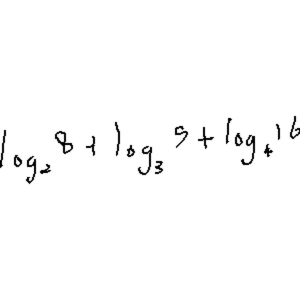 log₂ 8 + log₃ 5 + log₄ 16